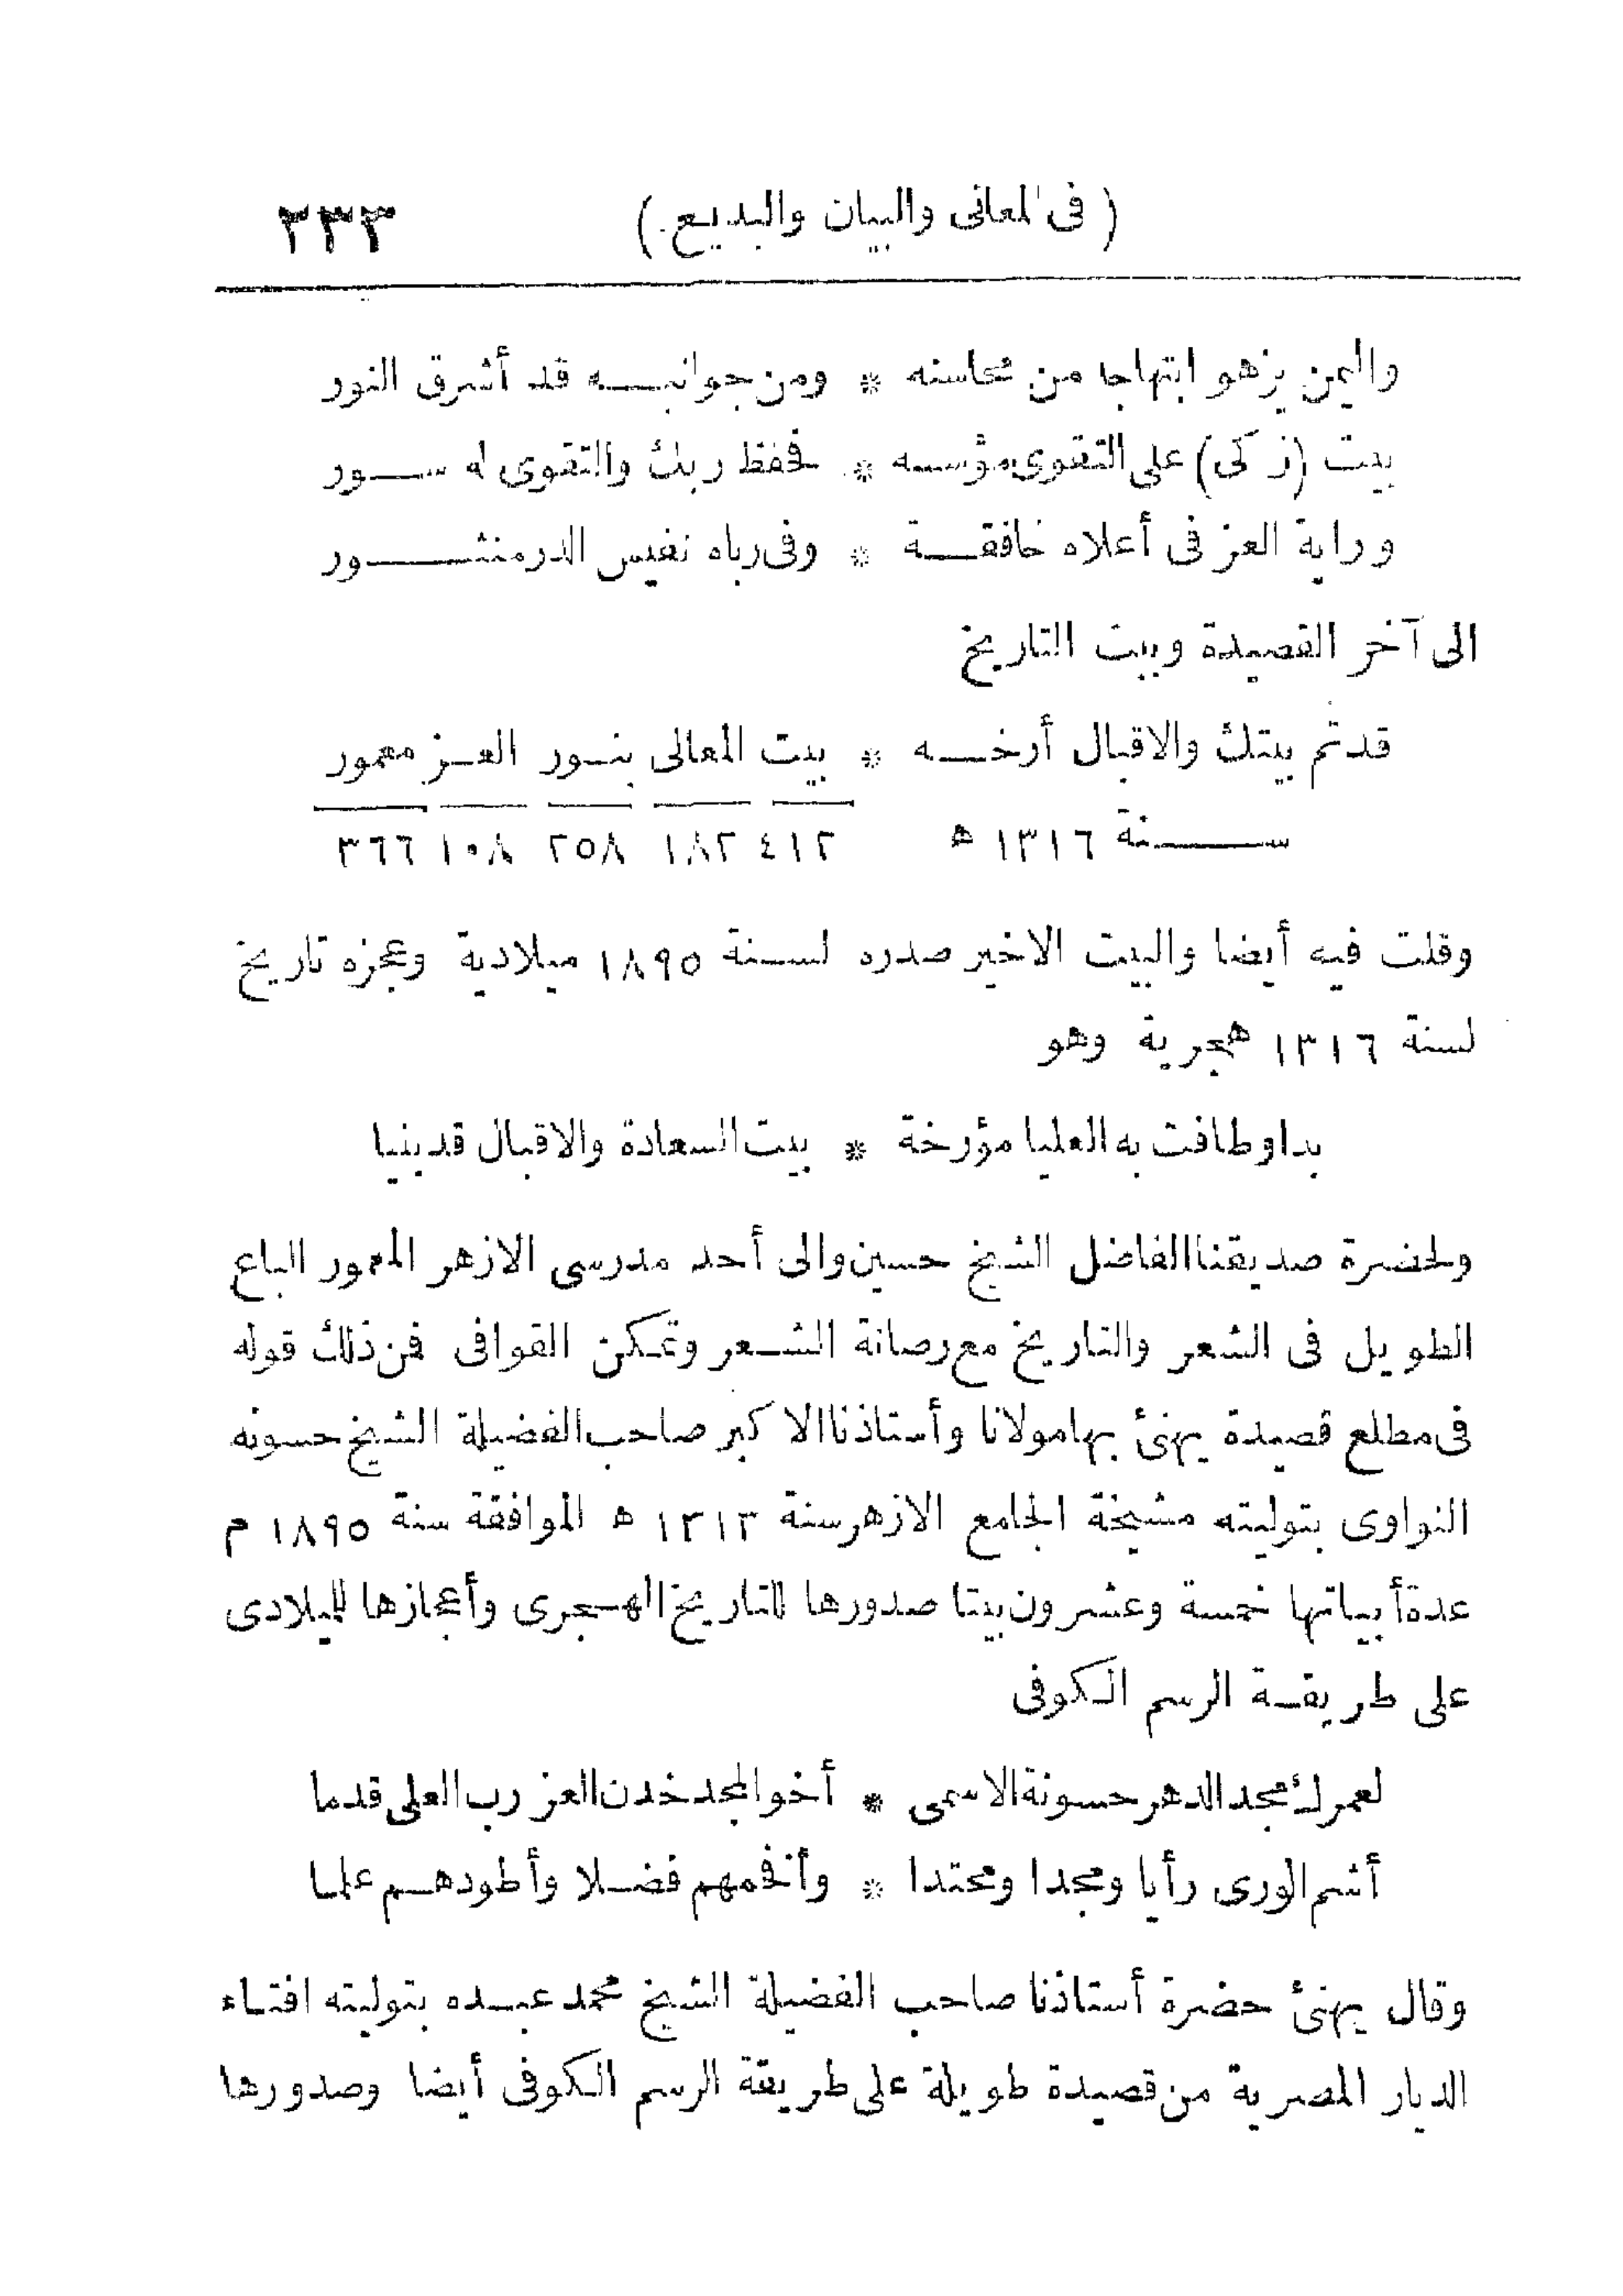 ( فى المعانى والبيان والبديع ) ٢٣٣
واليمن يزهو ابتهاجا من محاسنه * ومن جوانبه قد أشرق النور
بيت (زكى) على التقوى مؤسسه * فحفظ ربك والتقوى له سور
وراية العز فى أعلاه خافقة * وفى رباه نفيس الدر منثور
الى آخر القصيدة وبيت التاريخ
قد تم بيتك والاقبال أرخه * بيت المعالى بنور العز معمور
سنة ١٣١٦ ه ٤١٢ ١٨٢ ٢٥٨ ١٠٨ ٣٦٦
وقلت فيه أيضا والبيت الاخير صدره لسنة ١٨٩٥ ميلادية وعجزه تاريخ
لسنة ١٣١٦ هجرية وهو
بدا وطافت به العليا مؤرخة * بيت السعادة والاقبال قد بنيا
ولحضرة صديقنا الفاضل الشيخ حسين والى أحد مدرسى الازهر المعمور الباع
الطويل فى الشعر والتاريخ مع رصانة الشعر وتمكن القوافى فمن ذلك قوله
فى مطلع قصيدة يهنئ بها مولانا وأستاذنا الاكبر صاحب الفضيلة الشيخ حسونه
النواوى بتوليته مشيخة الجامع الازهر سنة ١٣١٣ ه الموافقة سنة ١٨٩٥ م
عدة أبياتها خمسة وعشرون بيتا صدورها للتاريخ الهجرى وأعجازها للميلادى
على طريقة الرسم الكوفى
لعمرك مجد الدهر حسونة الاسمى * أخو المجد خدن العز رب العلى قدما
أشم الورى رأيا ومجدا ومحتدا * وأفخمهم فضلا وأطودهم علما
وقال يهنئ حضرة أستاذنا صاحب الفضيلة الشيخ محمد عبده بتوليته افتاء
الديار المصرية من قصيدة طويلة على طريقة الرسم الكوفى أيضا وصدورها